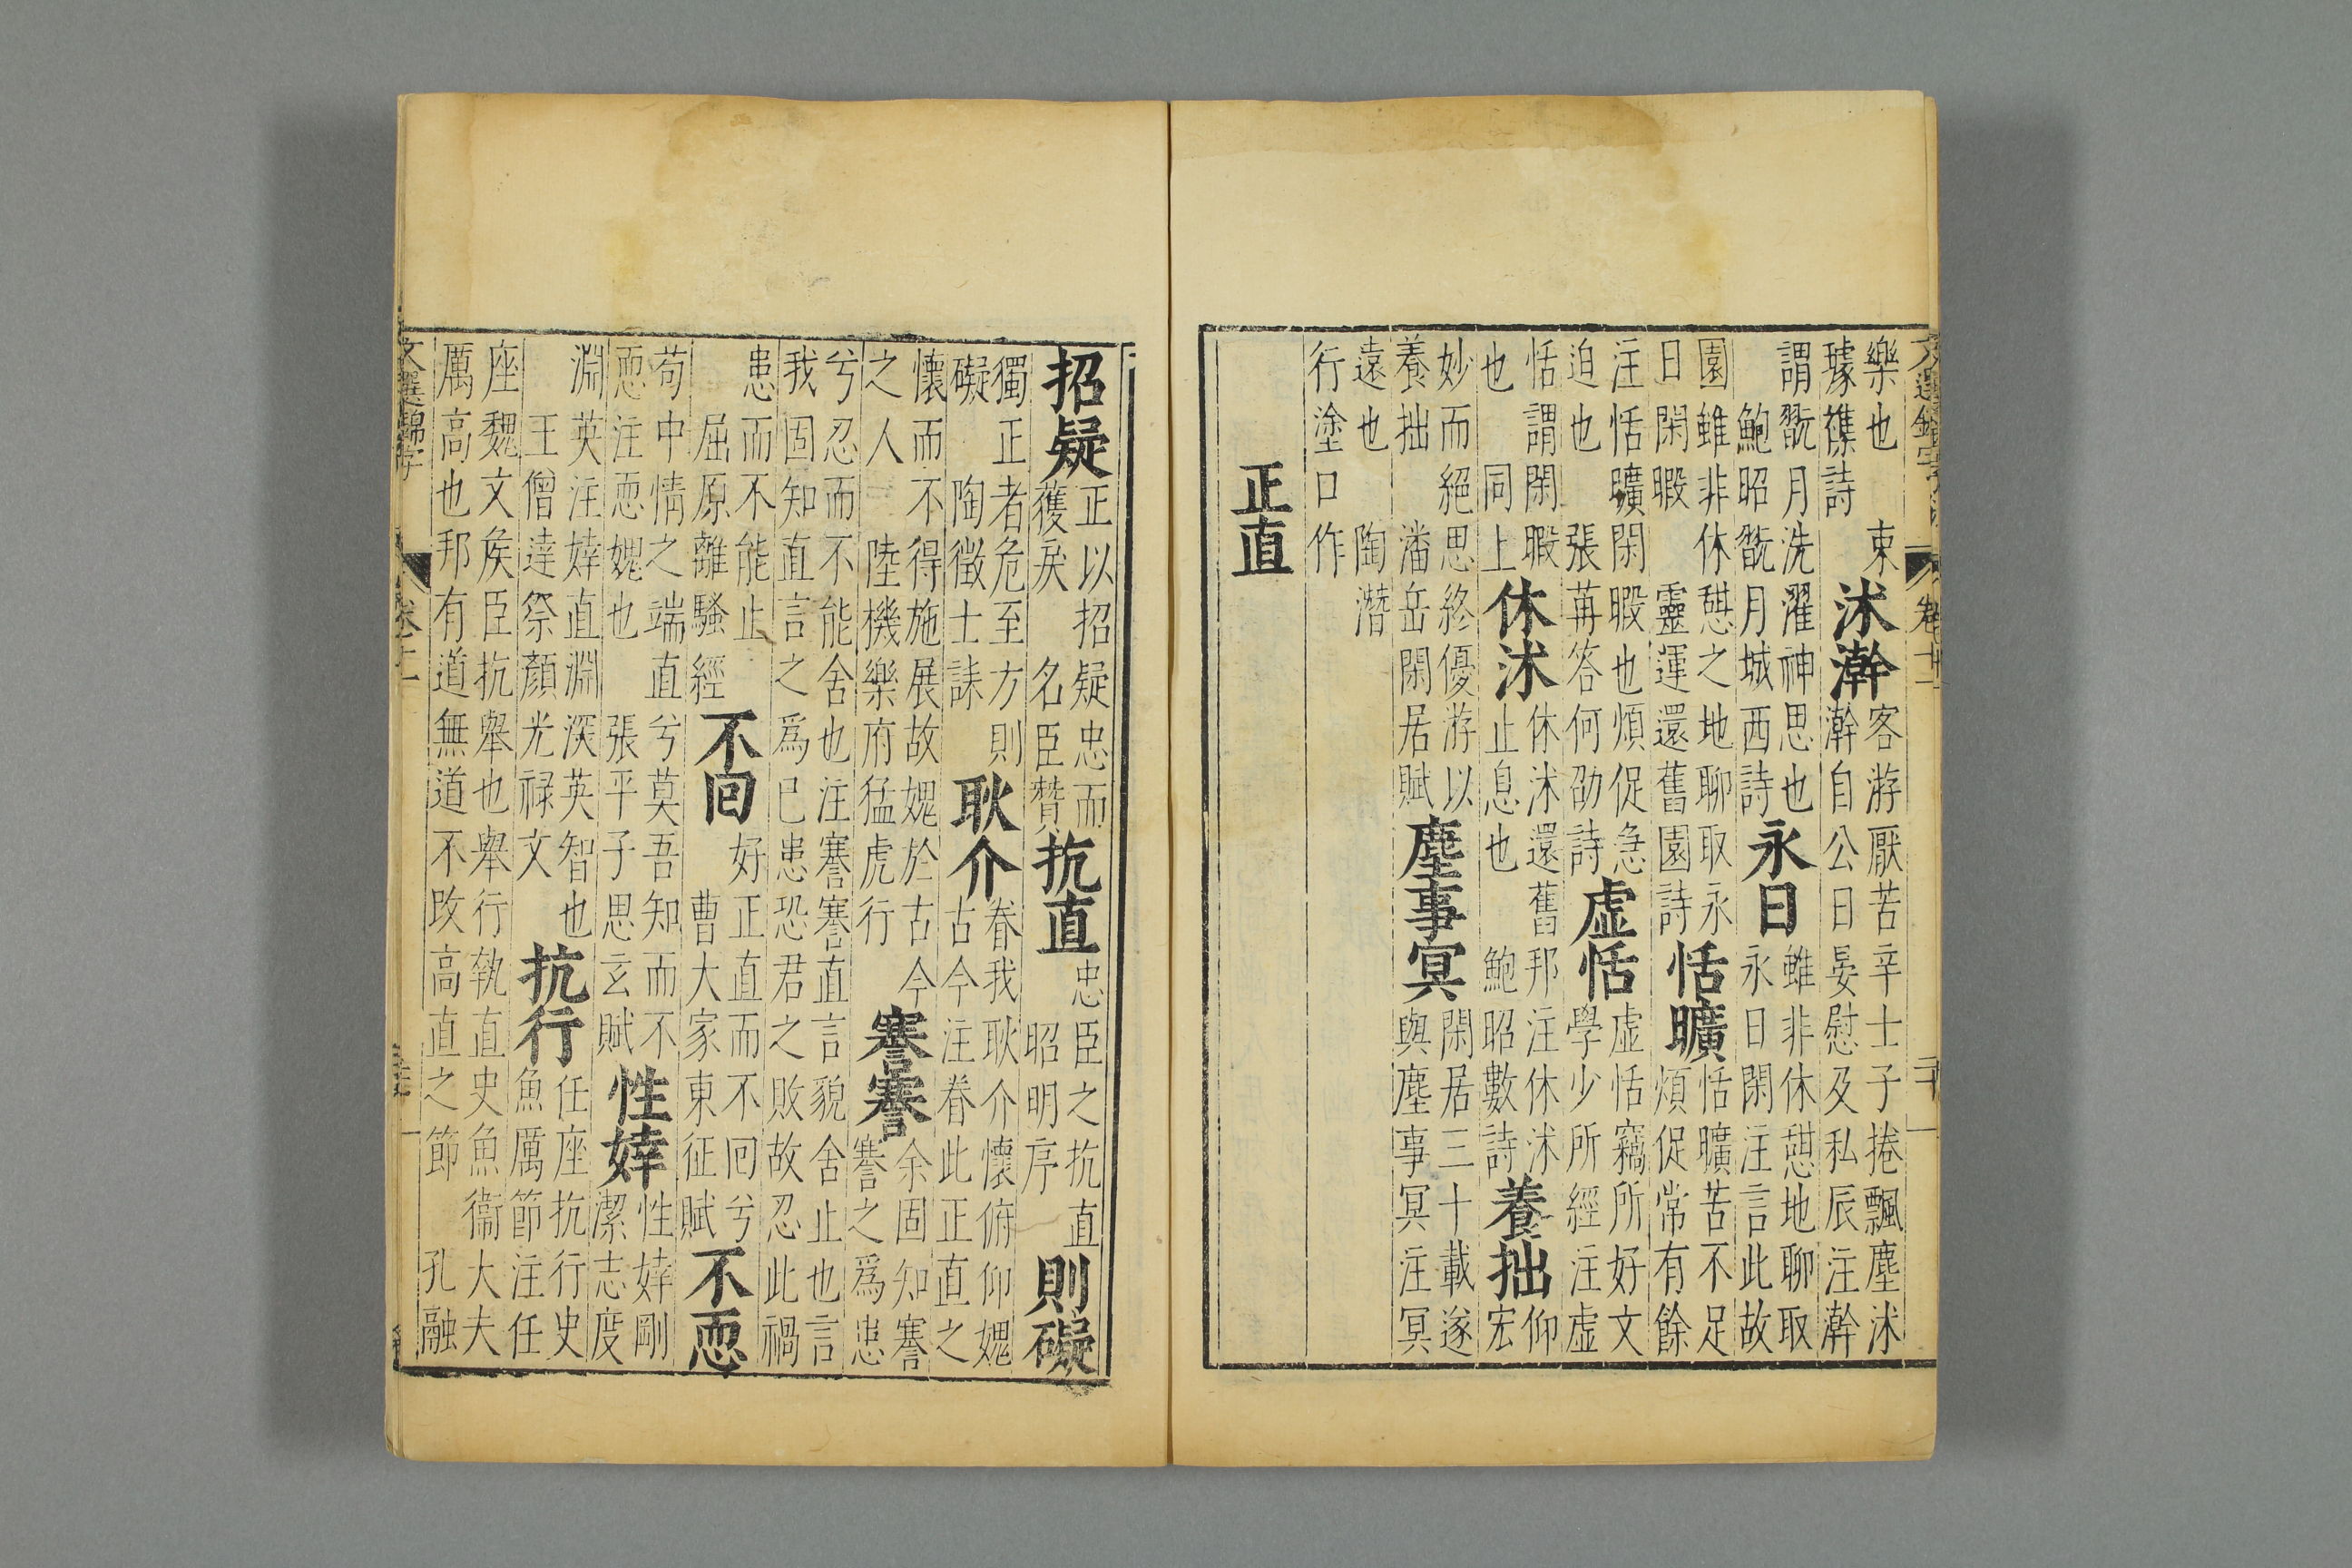 樂也 束
璩襍詩
沐澣
客游厭苦辛士子捲飄塵沐
澣自公日晏慰及私辰注澣
謂翫月洗濯神思也
鮑昭翫月城西詩
永日
雖非休憇地聊取
永日閑注言此故
園雖非休憇之地聊取永
日閑暇 靈運還舊園詩
恬曠
恬曠苦不足
煩促常有餘
注恬曠閑暇也煩促急
迫也 張茀答何劭詩
虛恬
虛恬竊所好文
學少所經注虛
恬謂閑暇
也 同上
休沐
休沐還舊邦注休沐
止息也 鮑昭數詩
養拙
仰
宏
妙而絕思終優游以
養拙 潘岳閑居賦
塵事冥
閑居三十載遂
與塵事冥注冥
遠也 陶潛
行塗口作
正直
招疑
正以招疑忠而
獲戾 名臣贊
抗直
忠臣之抗直
昭明序
則礙
獨正者危至方則
礙 陶徵士誄
耿介
眷我耿介懷俯仰媿
古今注眷此正直之
懷而不得施展故媿於古今
之人 陸機樂府猛虎行
謇謇
余固知謇
謇之爲患
兮忍而不能舍也注謇謇直言貌舍止也言
我固知直言之爲已患恐君之敗故忍此禍
患而不能止
屈原離騷經
不回
好正直而不回兮
曹大家東征賦
不恧
苟中情之端直兮莫吾知而不
恧注恧媿也 張平子思玄賦
性婞
性婞剛
潔志度
淵英注婞直淵深英智也
王僧達祭顏光祿文
抗行
任座抗行史
魚厲節注任
座魏文矦臣抗舉也舉行執直史魚衞大夫
厲高也邦有道無道不改高直之節 孔融
文選錦字